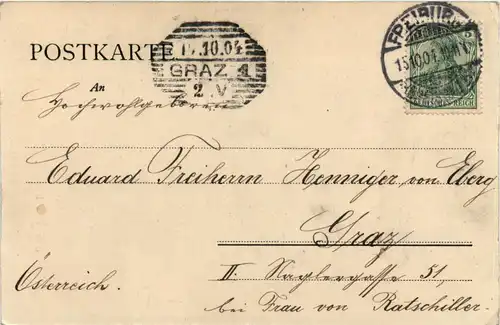 POSTKARTE
.10.04
GRAZ 1
2.V
FREIBURG
15.10.04.
DEUTSCHES REICH
An
Hochwohlgeboren
Eduard Freiherrn Henniger von Eberg
Graz
II. Naglergasse 51,
Österreich.
bei Frau von Ratschiller.